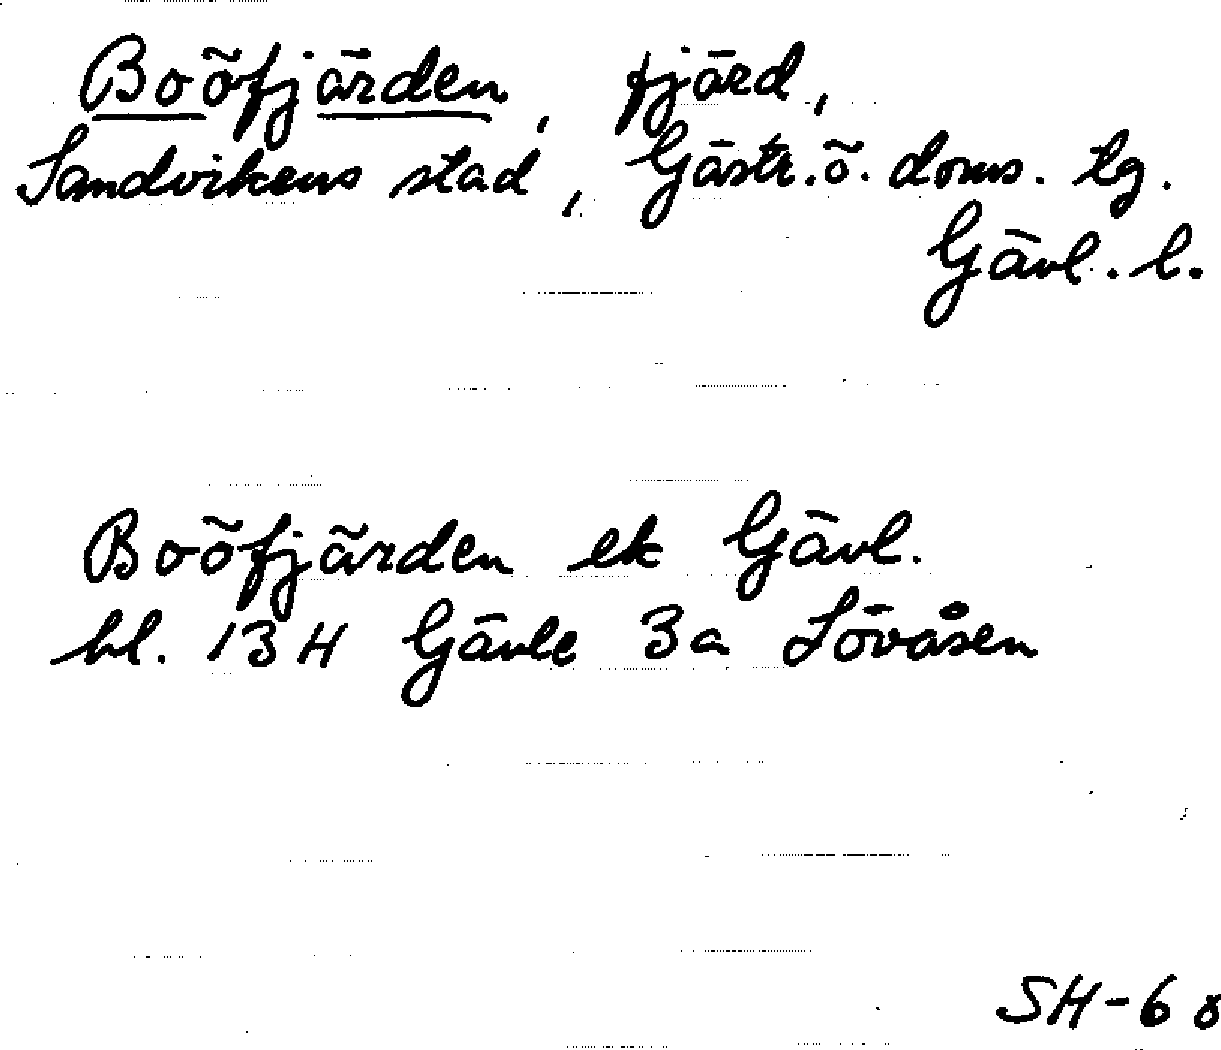 Boöfjärden, fjärd,
Sandvikens stad, Gästr. ö. doms. tg.
Gävl. l.
Boöfjärden ek Gävl.
bl. 13 H Gävle 3a Lövåsen
SH-68